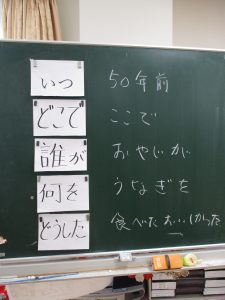 いつ 50年前
どこで ここで
誰が おやじが
何を うなぎを
どうした 食べたお…しかった